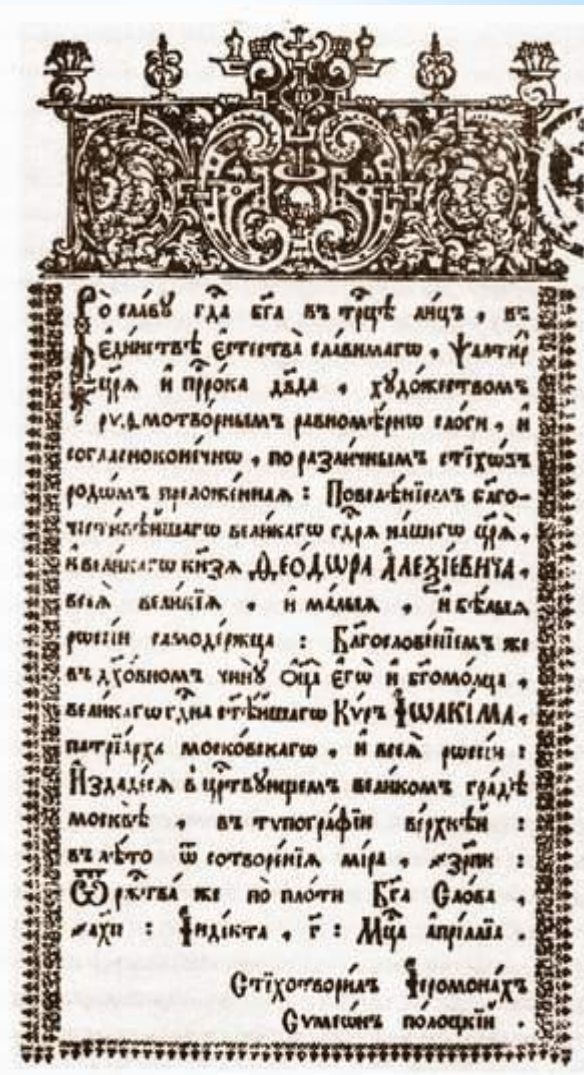 Во славу гд҃а бг҃а въ трⷪ҇цѣ лицъ , въ
є҆ди́нствѣ є҆стества̀ сла́вимагѡ , Ѱалти́рь
цр҃ѧ̀ и҆ прⷪ҇ро́ка дв҃да , хꙋдо́жествомъ
риѳмотво́рнымъ равномѣ́рнѡ сло́ги , и҆
согласноконе́чнѡ , по разли́чнымъ сті́хѡвъ
родѡ́мъ преложе́ннаѧ : Повелѣ́нїемъ бл҃го-
чести́вѣйшагѡ вели́кагѡ гдⷭ҇рѧ на́шегѡ цр҃ѧ̀ ,
и҆ вели́кагѡ кн҃зѧ ѲЕО́ДѠРА АЛЕѮІ́ЕВИЧА ,
всеѧ̀ вели́кїѧ , и҆ ма́лыѧ , и҆ бѣ́лыѧ
рѡссі́и самоде́ржца : Бл҃гослове́нїемъ же
въ дх҃о́вномъ чи́нꙋ Ѻ҆ц҃а̀ є҆гѡ̀ и҆ бг҃омо́лца ,
вели́кагѡ гдⷭ҇на ст҃ѣ́йшагѡ Кѵ́ръ ІѠАКІ́МА ,
патрїа́рха моско́вскагѡ , и҆ всеѧ̀ рѡссі́и :
И҆здаде́сѧ в̾ црⷭ҇твꙋющемъ вели́комъ гра́дѣ
москвѣ̀ , въ тѵпогра́фїи ве́рхнѣй :
въ лѣ́то ѿ сотворе́нїѧ мі́ра , ҂зр҃пи :
Ѿ ржⷭ҇тва́ же по пло́ти Бг҃а Сло́ва ,
҂ах҃п : І҆нді́кта , г҃ : Мцⷭ҇а а҆прі́лліа .
Стїхотвори́лъ І҆еромона́хъ
Сѵмеѡ́нъ по́лоцкїй .